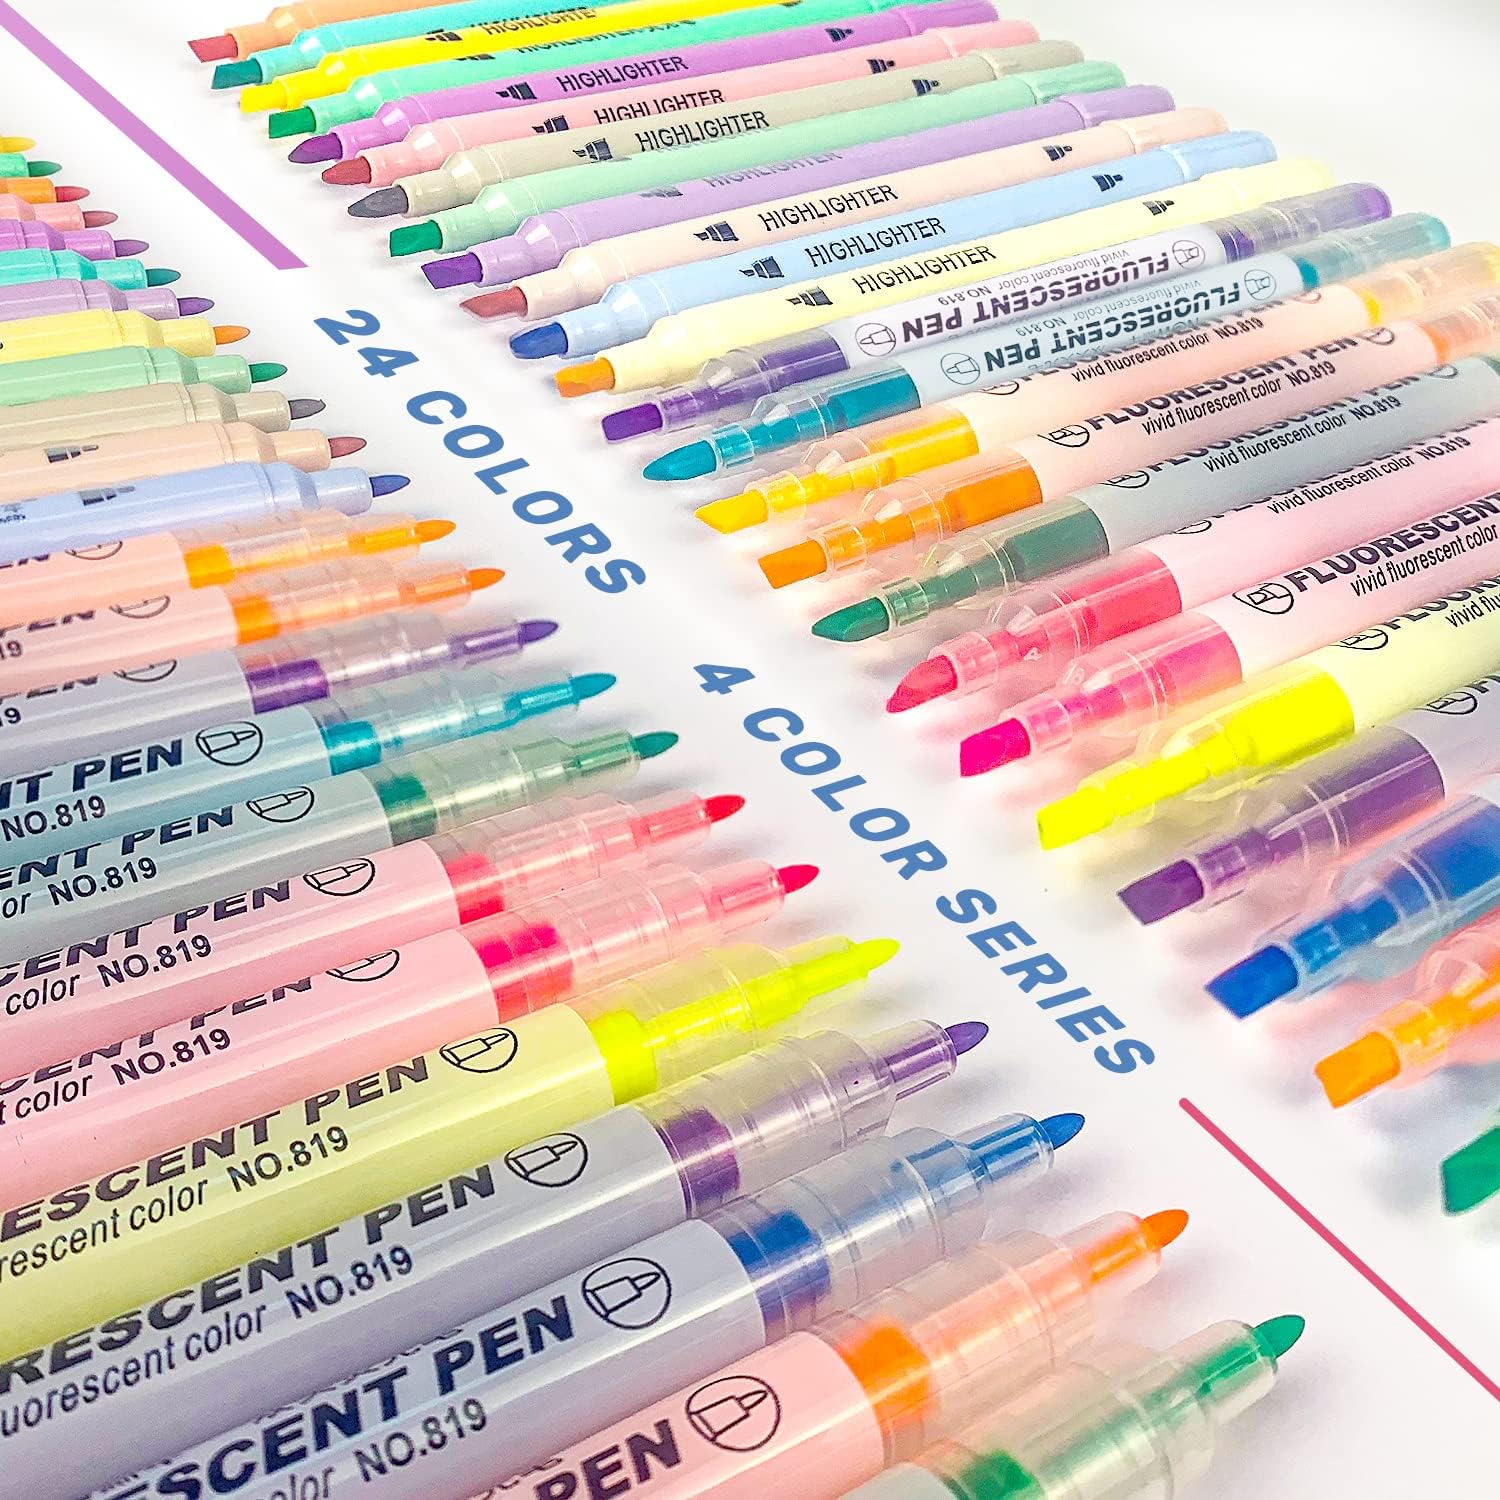 HIGHLIGHTER
HIGHLIGHTER
HIGHLIGHTER
HIGHLIGHTER
HIGHLIGHTER
HIGHLIGHTER
HIGHLIGHTER
HIGHLIGHTER
FLUORESCENT PEN
vivid fluorescent color NO.819
FLUORESCENT PEN
vivid fluorescent color NO.819
vivid fluorescent color NO.819
FLUORESCENT PEN
vivid fluorescent color NO.819
vivid fluorescent color NO.819
vivid fluorescent color NO.819
FLUORESCENT
vivid fluorescent color
24 COLORS
4 COLOR SERIES
PEN
NO.819
PEN
NO.819
CENT PEN
color NO.819
PEN
color NO.819
ESCENT PEN
rescent color NO.819
RESCENT PEN
uorescent color NO.819
ESCENT PEN
color NO.819
PEN